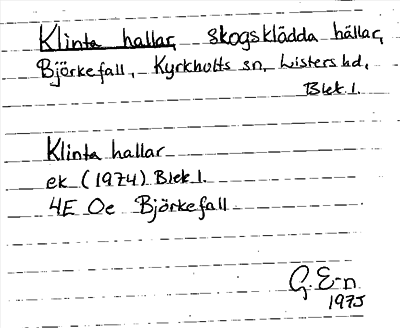 Klinta hallar, skogsklädda hällar,
Björkefall, Kyrkhults sn, Listers hd,
Blek l.
Klinta hallar
ek (1974) Blek l.
4E 0e Björkefall
G. E-n
1975